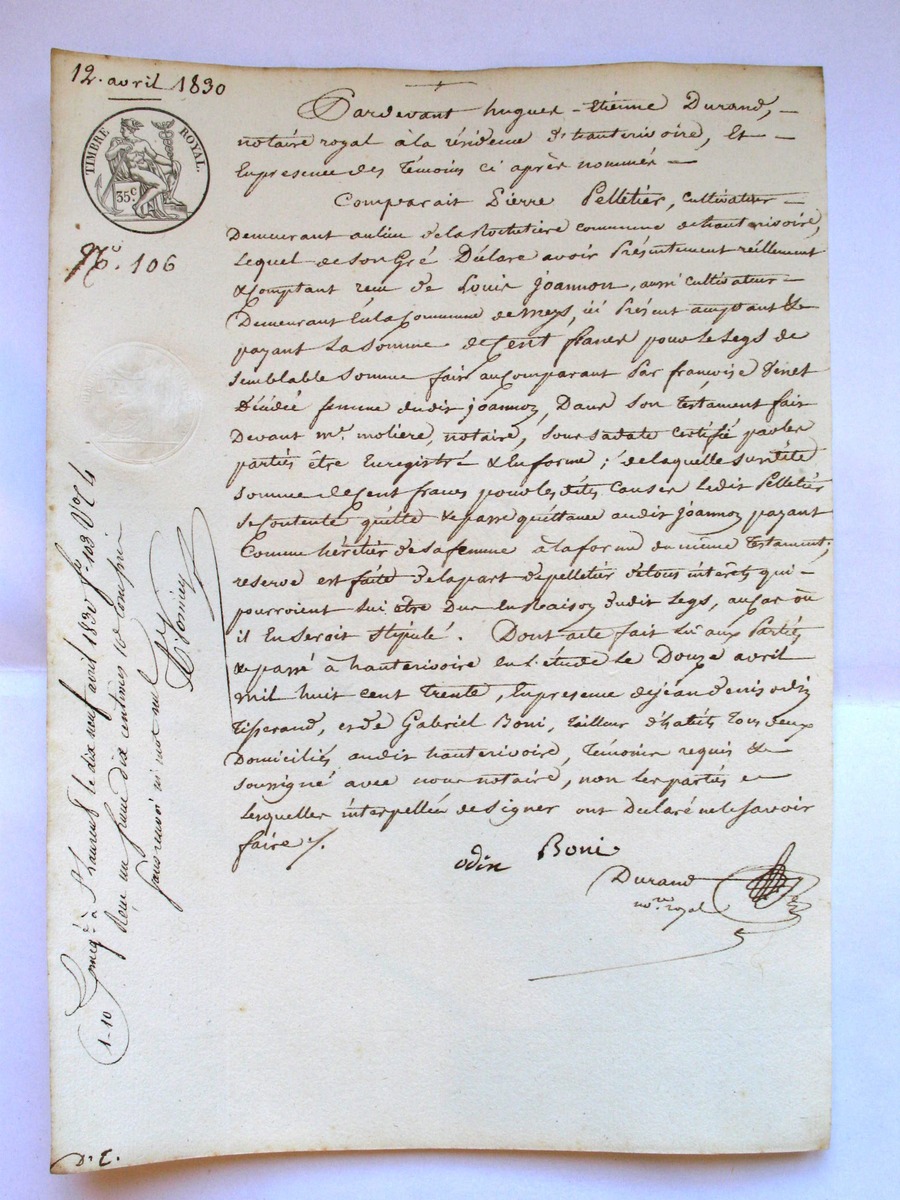 12. avril 1830
TIMBRE ROYAL.
35 c.
N.º 106
Pardevant hugues - Etienne Durand, -
notaire royal à la résidence d'hauterivoire, Et -
En presence des Témoins ci après nommés -
Comparait Pierre Pelletier, Cultivateur -
Demeurant au lieu de la commune de hauterivoire,
Lequel de son Gré Déclare avoir Présentement réellement
& Comptant reçu de Louis joannon, aussi Cultivateur -
Demeurant En la Commune de meys, ici Présent acceptant &
payant La Somme de Cent francs pour le Legs de
Semblable Somme fait au Comparant Par françoise
Décédée femme dudit joannon, Dans Son Testament fait
Devant m.e moliere, notaire, Sous Sa date Certifié par les
parties être Enregistré & En forme ; de laquelle Susdite
Somme de Cent francs pour les dites Causes Ledit Pelletier
Se Contente quitte & passe quittance audit joannon payant
Comme héritier de Sa femme à la forme du même Testament ;
reserve est faite de la part de pelletier de tous intérêts qui -
pourroient lui être Dus En Raison dudit Legs, au Cas où
il En Seroit Stipulé. Dont acte fait Lu aux Parties
& passé à hauterivoire En L'étude Le Douze avril
mil huit Cent Trente, En presence de jean denis odin
Tisserand, et de Gabriel Boni, Tailleur d'habits Tous deux
Domiciliés audit hauterivoire, Témoins requis &
Soussigné avec nous notaire, non Les parties
Lesquelles interpellées de Signer ont Déclaré ne le Savoir
faire /.
odin Boni
Durand
no.re royal
à St Laurent le dix neuf avril 1830 f.o 103 V.o C 4
Reçu un franc dix centimes 10.e compris
sans renvoi ni mot nul
1-10
D. E.